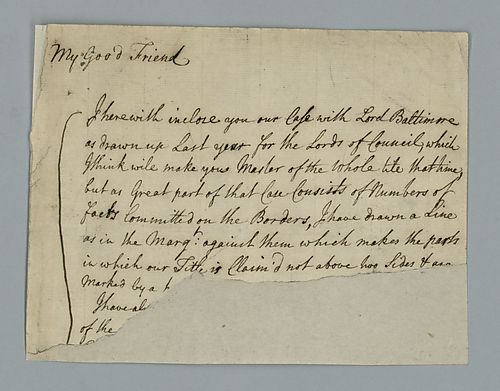 My Good Friend
I herewith inclose you our Case with Lord Baltimore
as drawn up Last year for the Lords of Council, which
I think will make you Master of the whole till that time,
but as Great part of that Case Consists of Numbers of
facts Committed on the Borders, I have drawn a Line
as in the Marg: against them which makes the parts
in which our Title is Claim'd not above two Sides &
Marked by a
I have
of the